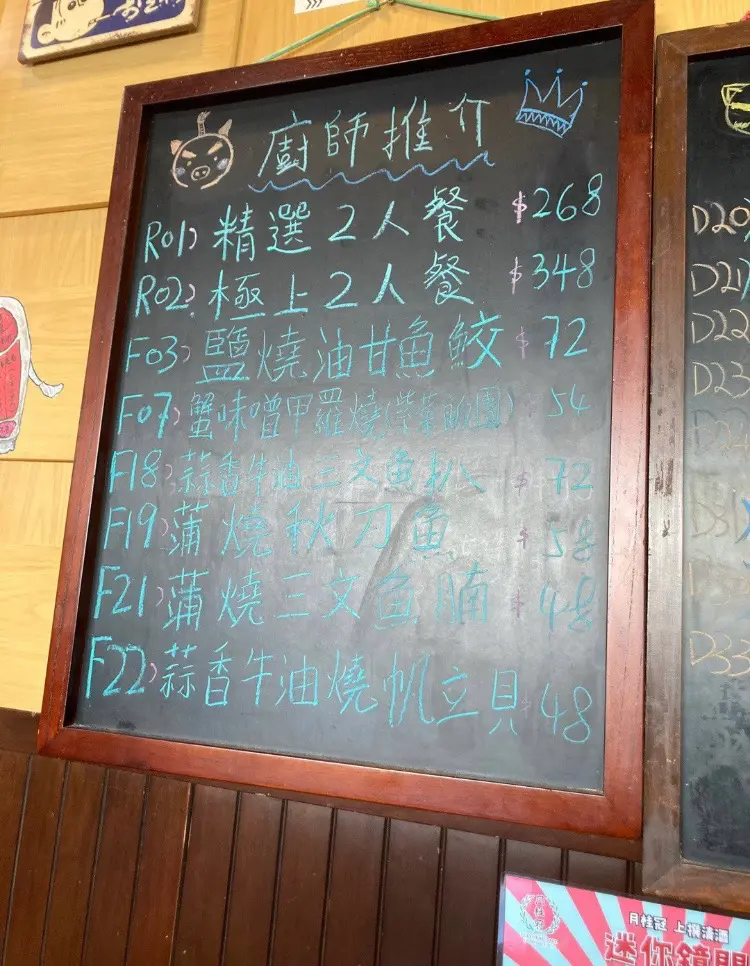 廚師推介
R01) 精選2人餐 $268
R02) 極上2人餐 $348
F03) 鹽燒油甘魚鮫 $72
F07) 蟹味噌甲羅燒(紫菜飯團) $54
F18) 蒜香牛油三文魚扒 $72
F19) 蒲燒秋刀魚 $58
F21) 蒲燒三文魚腩 $48
F22) 蒜香牛油燒帆立貝 $48
D20)
D21)
D22
D23
D31)
D33
月桂冠 上撰清酒
迷你鏡開